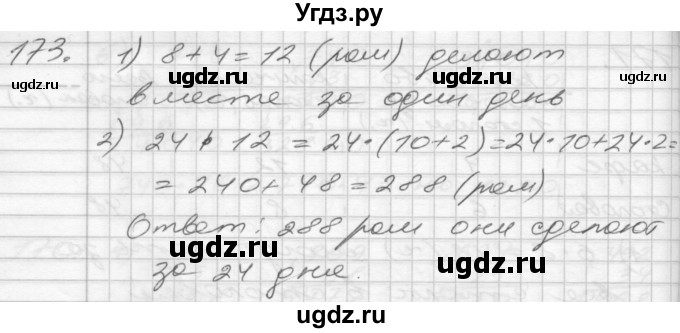 Угдз.ру
173. 1) 8+4=12 (рам) делают
ugdz.ru ugdz.ru ugdz.ru
вместе за один день
2) 24 · 12 = 24·(10+2)=24·10+24·2=
= 240+48=288 (рам)
ugdz.ru ugdz.ru
Ответ: 288 рам они сделают
ugdz.ru ugdz.ru ugdz.ru
за 24 дня.
Угдз.ру